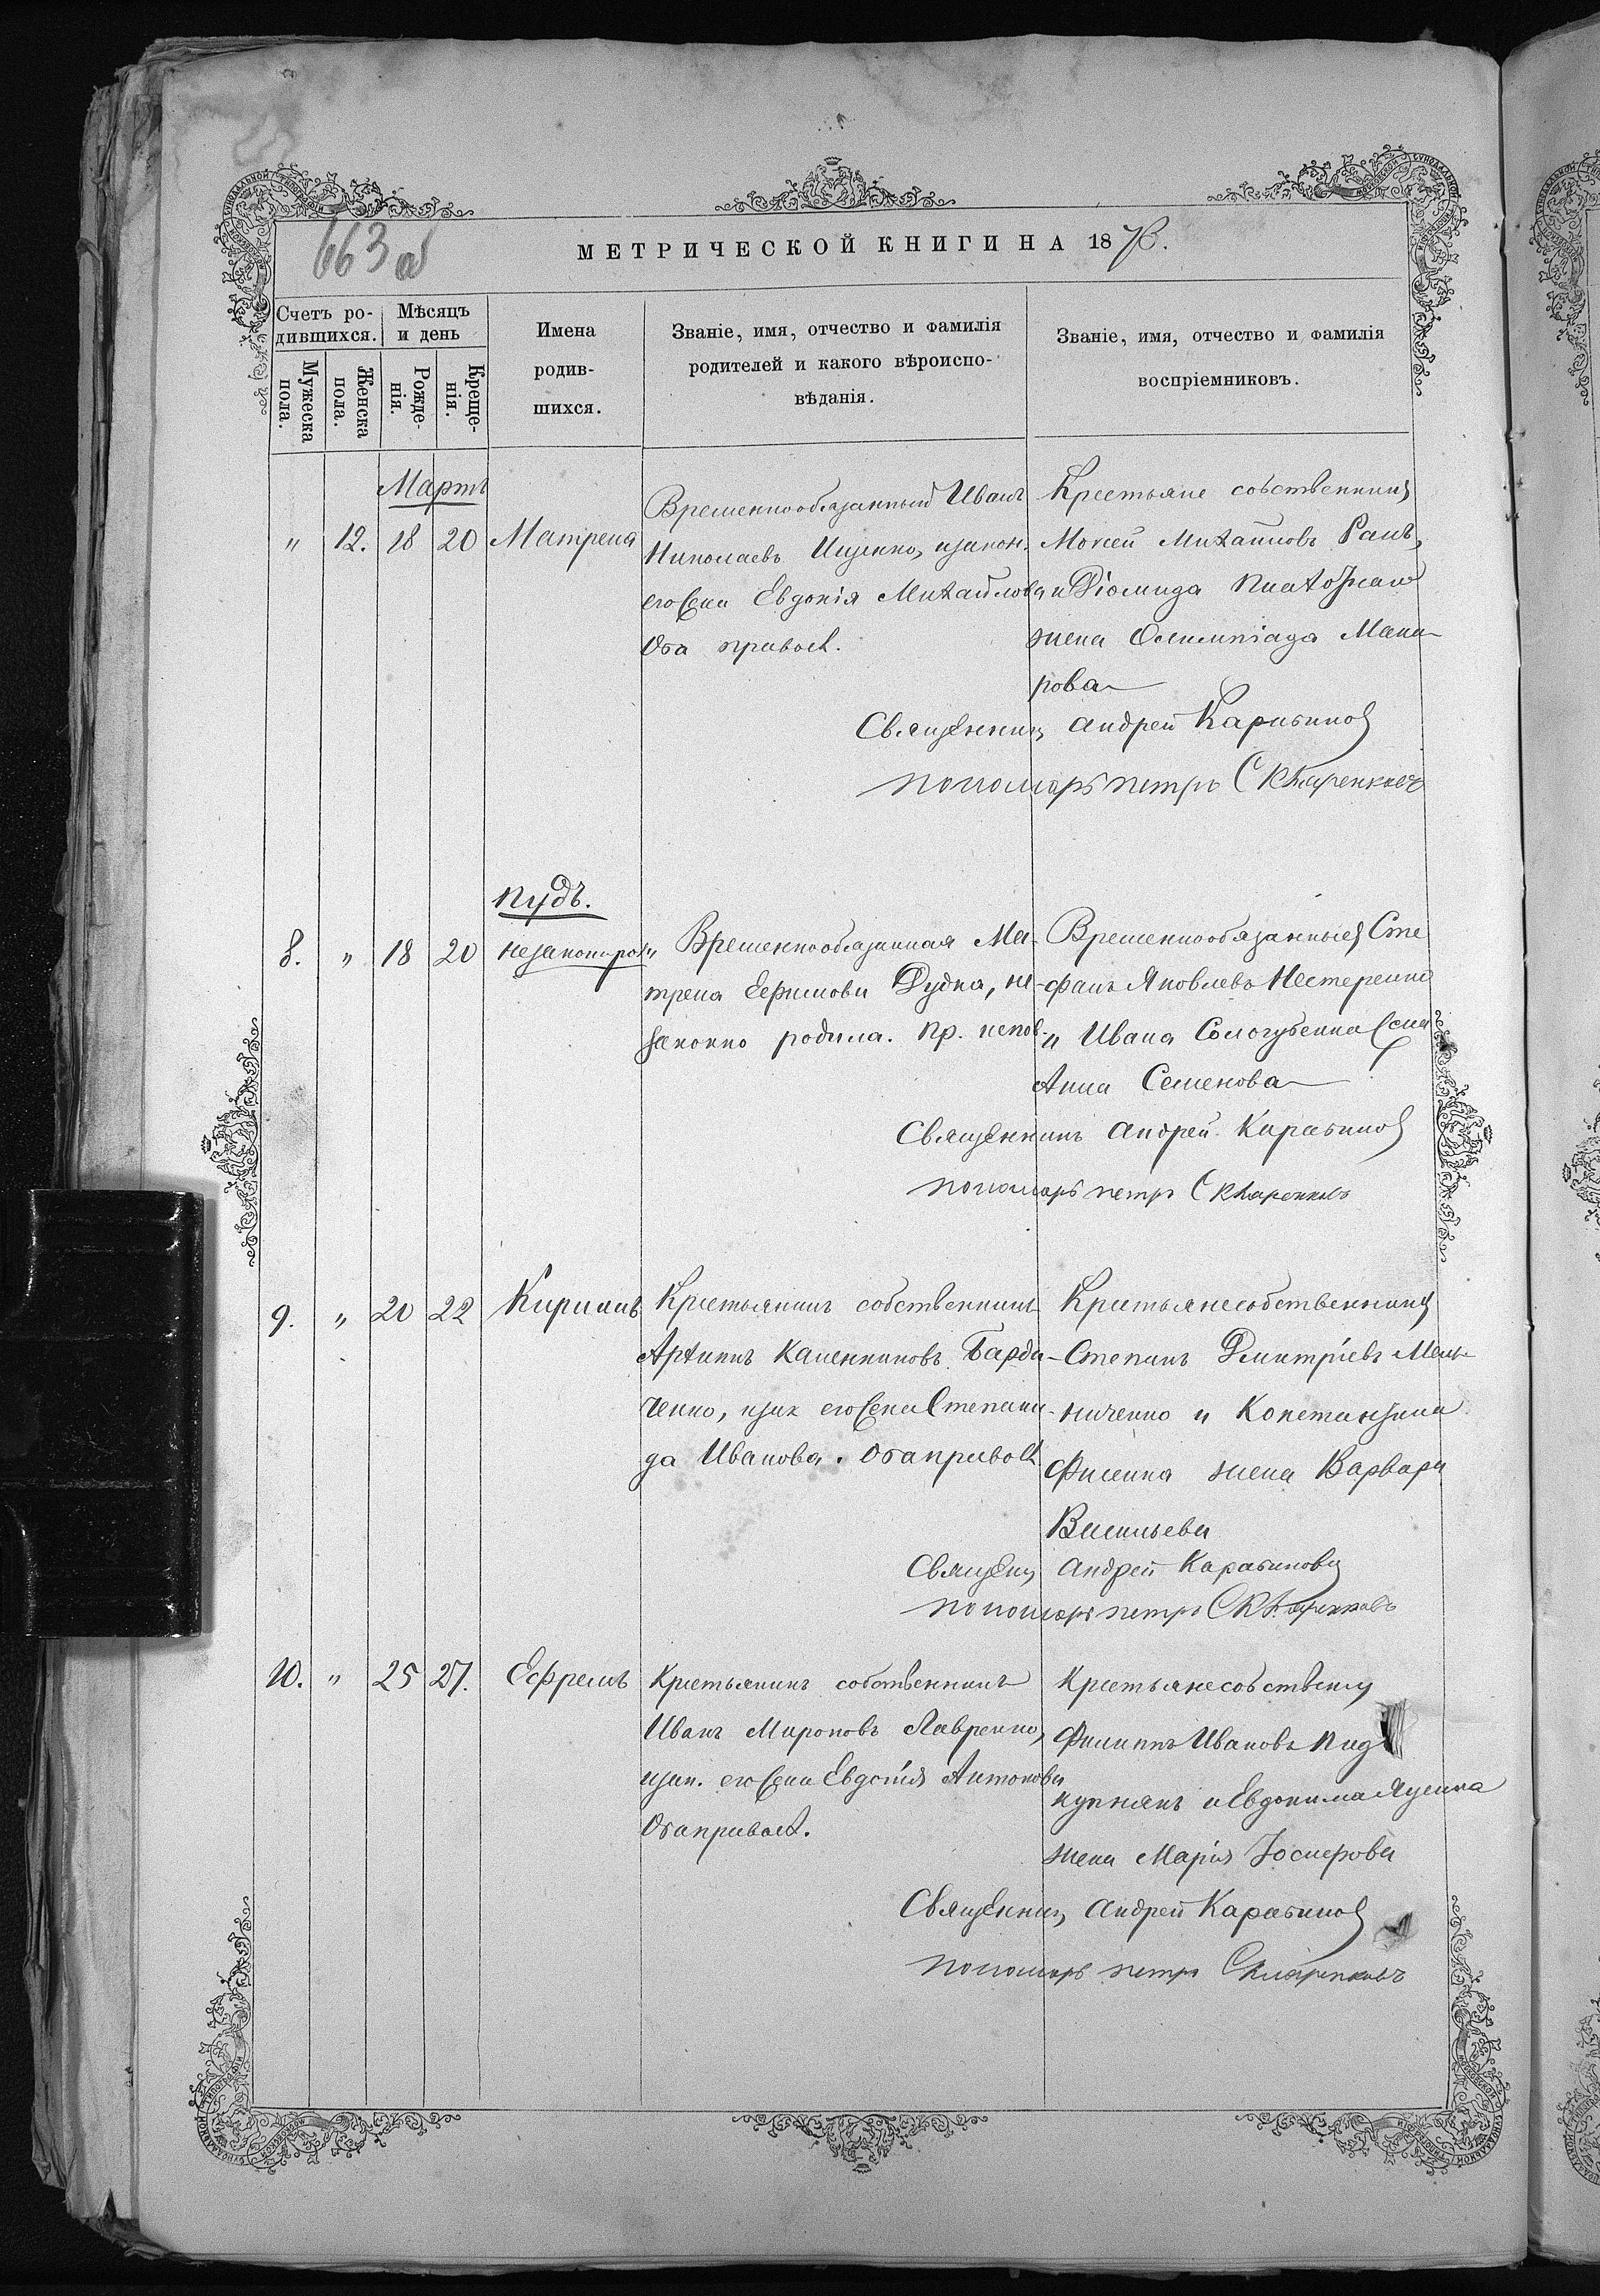 663 об
МЕТРИЧЕСКОЙ КНИГИ НА 187
Счетъ ро-
дившихся.
Мѣсяцъ
и день
Мужеска
пола.
Женска
пола.
Рожде-
нія.
Креще-
нія.
Имена
родив-
шихся.
Званіе, имя, отчество и фамилія
родителей и какого вѣроиспо-
вѣданія.
Званіе, имя, отчество и фамилія
воспріемниковъ.
Мартъ
" 12. 18 20 Матрена
Временнообязанный Иванъ
Николаевъ Ищенко, изакон.
его жена Евдокія Михайлова
Оба правосл.
Крестьяне собственники
Моисей Михайловъ
и Діомида
жена Олимпіада Мака-
рова
Священникъ Андрей Карабиновъ
пономарь петръ
Пудъ.
8. " 18 20 незаконорож.
Временнообязанная Ма-
трена Ефимова Дудка, не-
законно родила. Пр. испов.
Временнообязанные Сте
фанъ Яковлевъ Нестеренко
и Ивана Сологубенка жена
Анна Семенова
Священникъ Андрей Карабиновъ
пономарь петръ
9. " 20 22 Кириллъ
Крестьянинъ собственникъ
Архипъ Калениковъ Барда-
ченко, изак его жена Степани-
да Иванова. Оба правосл
Крестьяне собственники
Степанъ Дмитріевъ Мель-
ниченко и Константина
Фисенка жена Варвара
Васильева
Священ. Андрей Карабиновъ
пономарь петръ
10. " 25 27. Ефремъ
Крестьянинъ собственникъ
Иванъ Мироновъ Лавренко,
изак. его жена Евдокія Антонова
Оба правосл.
Крестьяне собствен.
Филиппъ Ивановъ Пид
и Евдокима Яценка
жена Марія Іосифова
Священникъ Андрей Карабиновъ
пономарь петръ